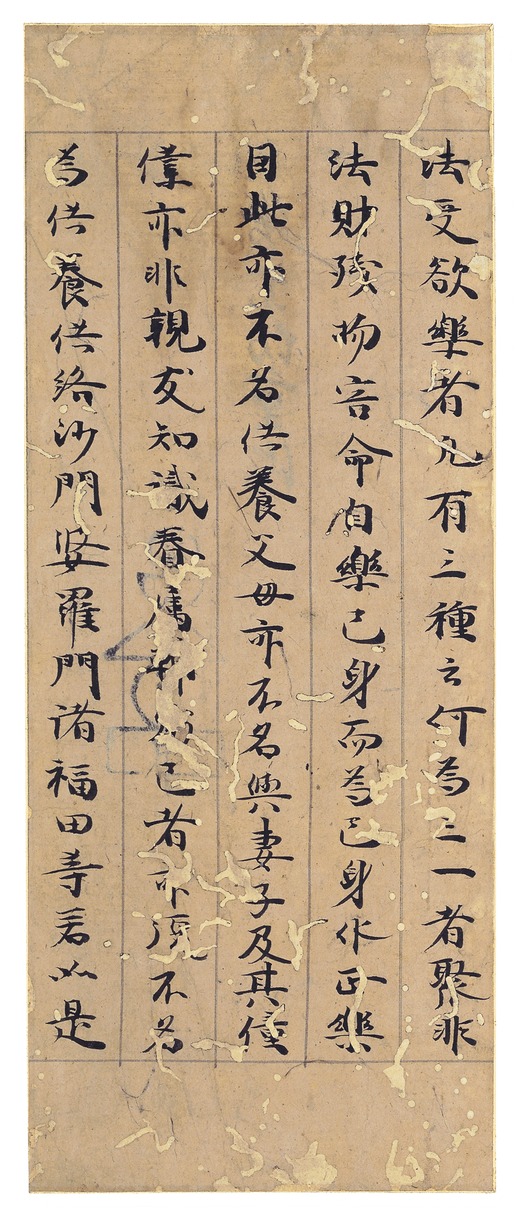 法受欲樂者凡有三種云何為三一者聚非
法財殘物害命自樂己身而為己身作正樂
因此亦不名供養父母亦不名與妻子及其僮
僕亦非親友知識眷屬己者亦復不名
為供養供給沙門婆羅門諸福田等若如是